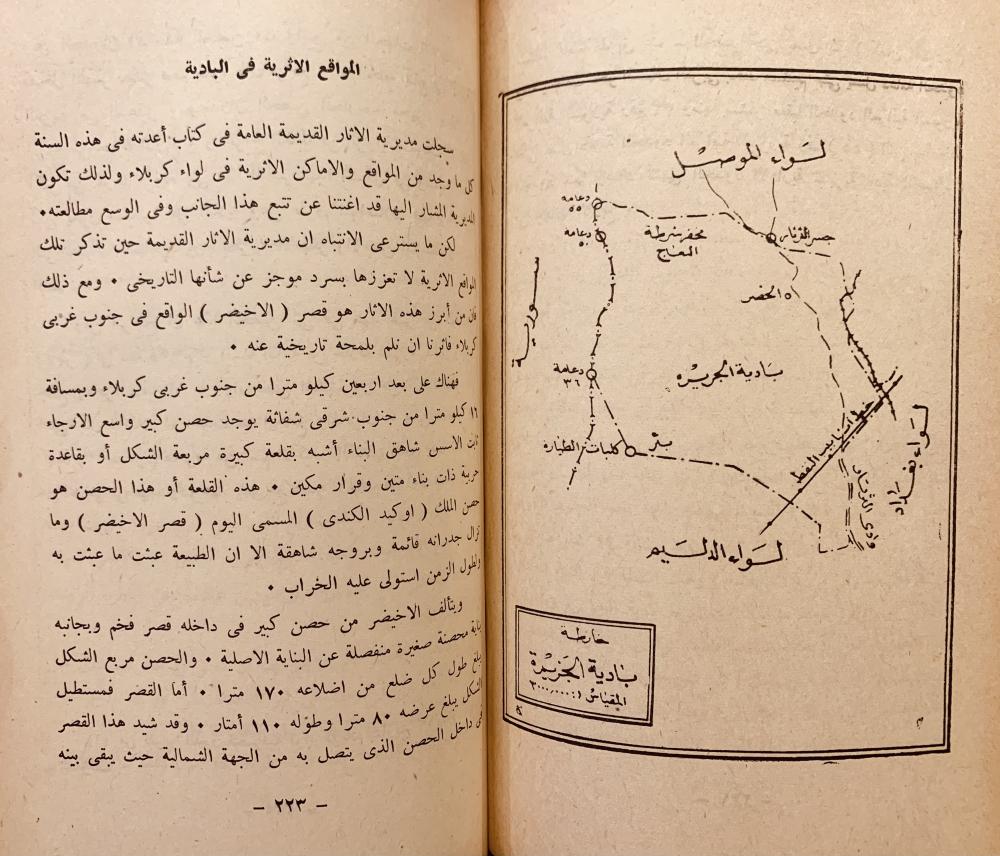 لواء الموصل
دعامة
٥٥
دعامة
محفر شرطة
المعاج
جسر الثرثار
الحضر
سورية
بادية الجزيرة
دعامة
٣٦
خط انابيب النفط
لواء بغداد
بئر
كليات الطيارة
وادي الثرثار
لواء الدليم
خارطة
بادية الجزيرة
المقياس
المواقع الاثرية فى البادية
سجلت مديرية الاثار القديمة العامة فى كتاب أعدته فى هذه السنة
كل ما وجد من المواقع والاماكن الاثرية فى لواء كربلاء ولذلك تكون
المديرية المشار اليها قد اغنتنا عن تتبع هذا الجانب وفى الوسع مطالعته٠
لكن ما يسترعى الانتباه ان مديرية الاثار القديمة حين تذكر تلك
المواقع الاثرية لا تعززها بسرد موجز عن شأنها التاريخى ٠ ومع ذلك
فان من أبرز هذه الاثار هو قصر ( الاخيضر ) الواقع فى جنوب غربى
كربلاء فاثرنا ان نلم بلمحة تاريخية عنه ٠
فهناك على بعد اربعين كيلو مترا من جنوب غربى كربلاء وبمسافة
١٦ كيلو مترا من جنوب شرقى شفاثة يوجد حصن كبير واسع الارجاء
ثابت الاسس شاهق البناء أشبه بقلعة كبيرة مربعة الشكل أو بقاعدة
حربية ذات بناء متين وقرار مكين ٠ هذه القلعة أو هذا الحصن هو
حصن الملك ( اوكيد الكندى ) المسمى اليوم ( قصر الاخيضر ) وما
تزال جدرانه قائمة وبروجه شاهقة الا ان الطبيعة عبثت ما عبثت به
ولطول الزمن استولى عليه الخراب ٠
ويتألف الاخيضر من حصن كبير فى داخله قصر فخم وبجانبه
بناية محصنة صغيرة منفصلة عن البناية الاصلية ٠ والحصن مربع الشكل
يبلغ طول كل ضلع من اضلاعه ١٧٠ مترا ٠ أما القصر فمستطيل
الشكل يبلغ عرضه ٨٠ مترا وطوله ١١٠ أمتار ٠ وقد شيد هذا القصر
فى داخل الحصن الذى يتصل به من الجهة الشمالية حيث يبقى بينه
– ٢٢٣ –